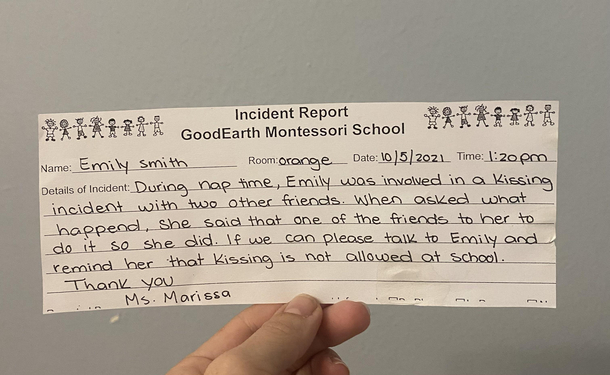 Incident Report
GoodEarth Montessori School
Name: Emily Smith Room: orange Date: 10/5/2021 Time: 1:20pm
Details of Incident: During nap time, Emily was involved in a kissing
incident with two other friends. When asked what
happend, she said that one of the friends to her to
do it so she did. If we can please talk to Emily and
remind her that kissing is not allowed at school.
Thank you
Ms. Marissa